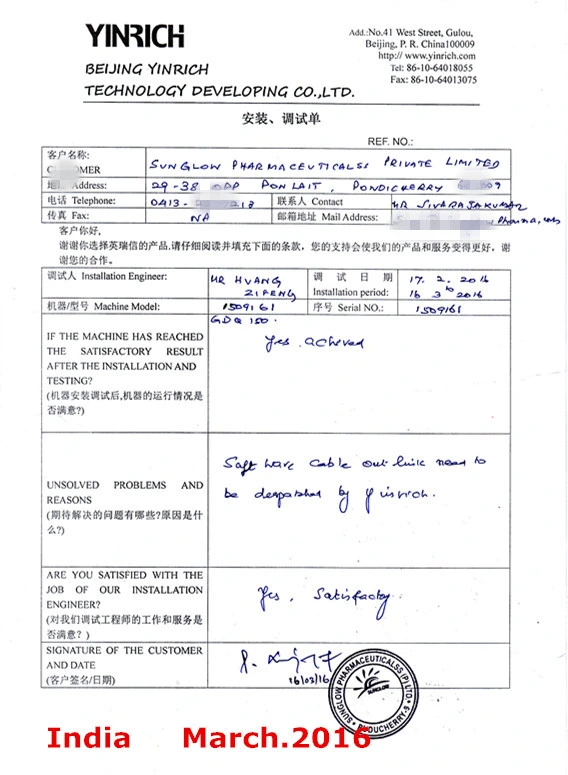 YINRICH
BEIJING YINRICH
TECHNOLOGY DEVELOPING CO.,LTD.
Add.:No.41 West Street, Gulou,
Beijing, P. R. China100009
http:// www.yinrich.com
Tel: 86-10-64018055
Fax: 86-10-64013075
安装、调试单
REF. NO.:
客户名称:
SUNGLOW PHARMACEUTICALSS PRIVATE LIMITED
Address:
29-38 ODP PONLAIT, PONDICHERRY
电话 Telephone:
0413-
联系人 Contact
MR SIVARAJAKUMAR
传真 Fax:
NA
邮箱地址 Mail Address:
客户你好,
谢谢你选择英瑞信的产品,请仔细阅读并填充下面的条款，您的支持会使我们的产品和服务变得更好，谢
谢您的合作。
调试人 Installation Engineer:
MR HUANG
ZIFENG
调 试 日 期
Installation period:
17. 2. 2016
16 3 2016
机器/型号 Machine Model:
1509161
GDQ 150.
序号 Serial NO.:
1509161
IF THE MACHINE HAS REACHED
THE SATISFACTORY RESULT
AFTER THE INSTALLATION AND
TESTING?
(机器安装调试后,机器的运行情况是
否满意?)
Yes. acheved
UNSOLVED PROBLEMS AND
REASONS
(期待解决的问题有哪些?原因是什
么?)
Soft ware cable out link need to
be despatched by Yinrich.
ARE YOU SATISFIED WITH THE
JOB OF OUR INSTALLATION
ENGINEER?
(对我们调试工程师的工作和服务是
否满意？)
Yes, Satisfactory
SIGNATURE OF THE CUSTOMER
AND DATE
(客户签名/日期)
16/03/16
SUNGLOW PHARMACEUTICALSS (P) LTD.
SUNGLOW
PUDUCHERRY-9
India March.2016